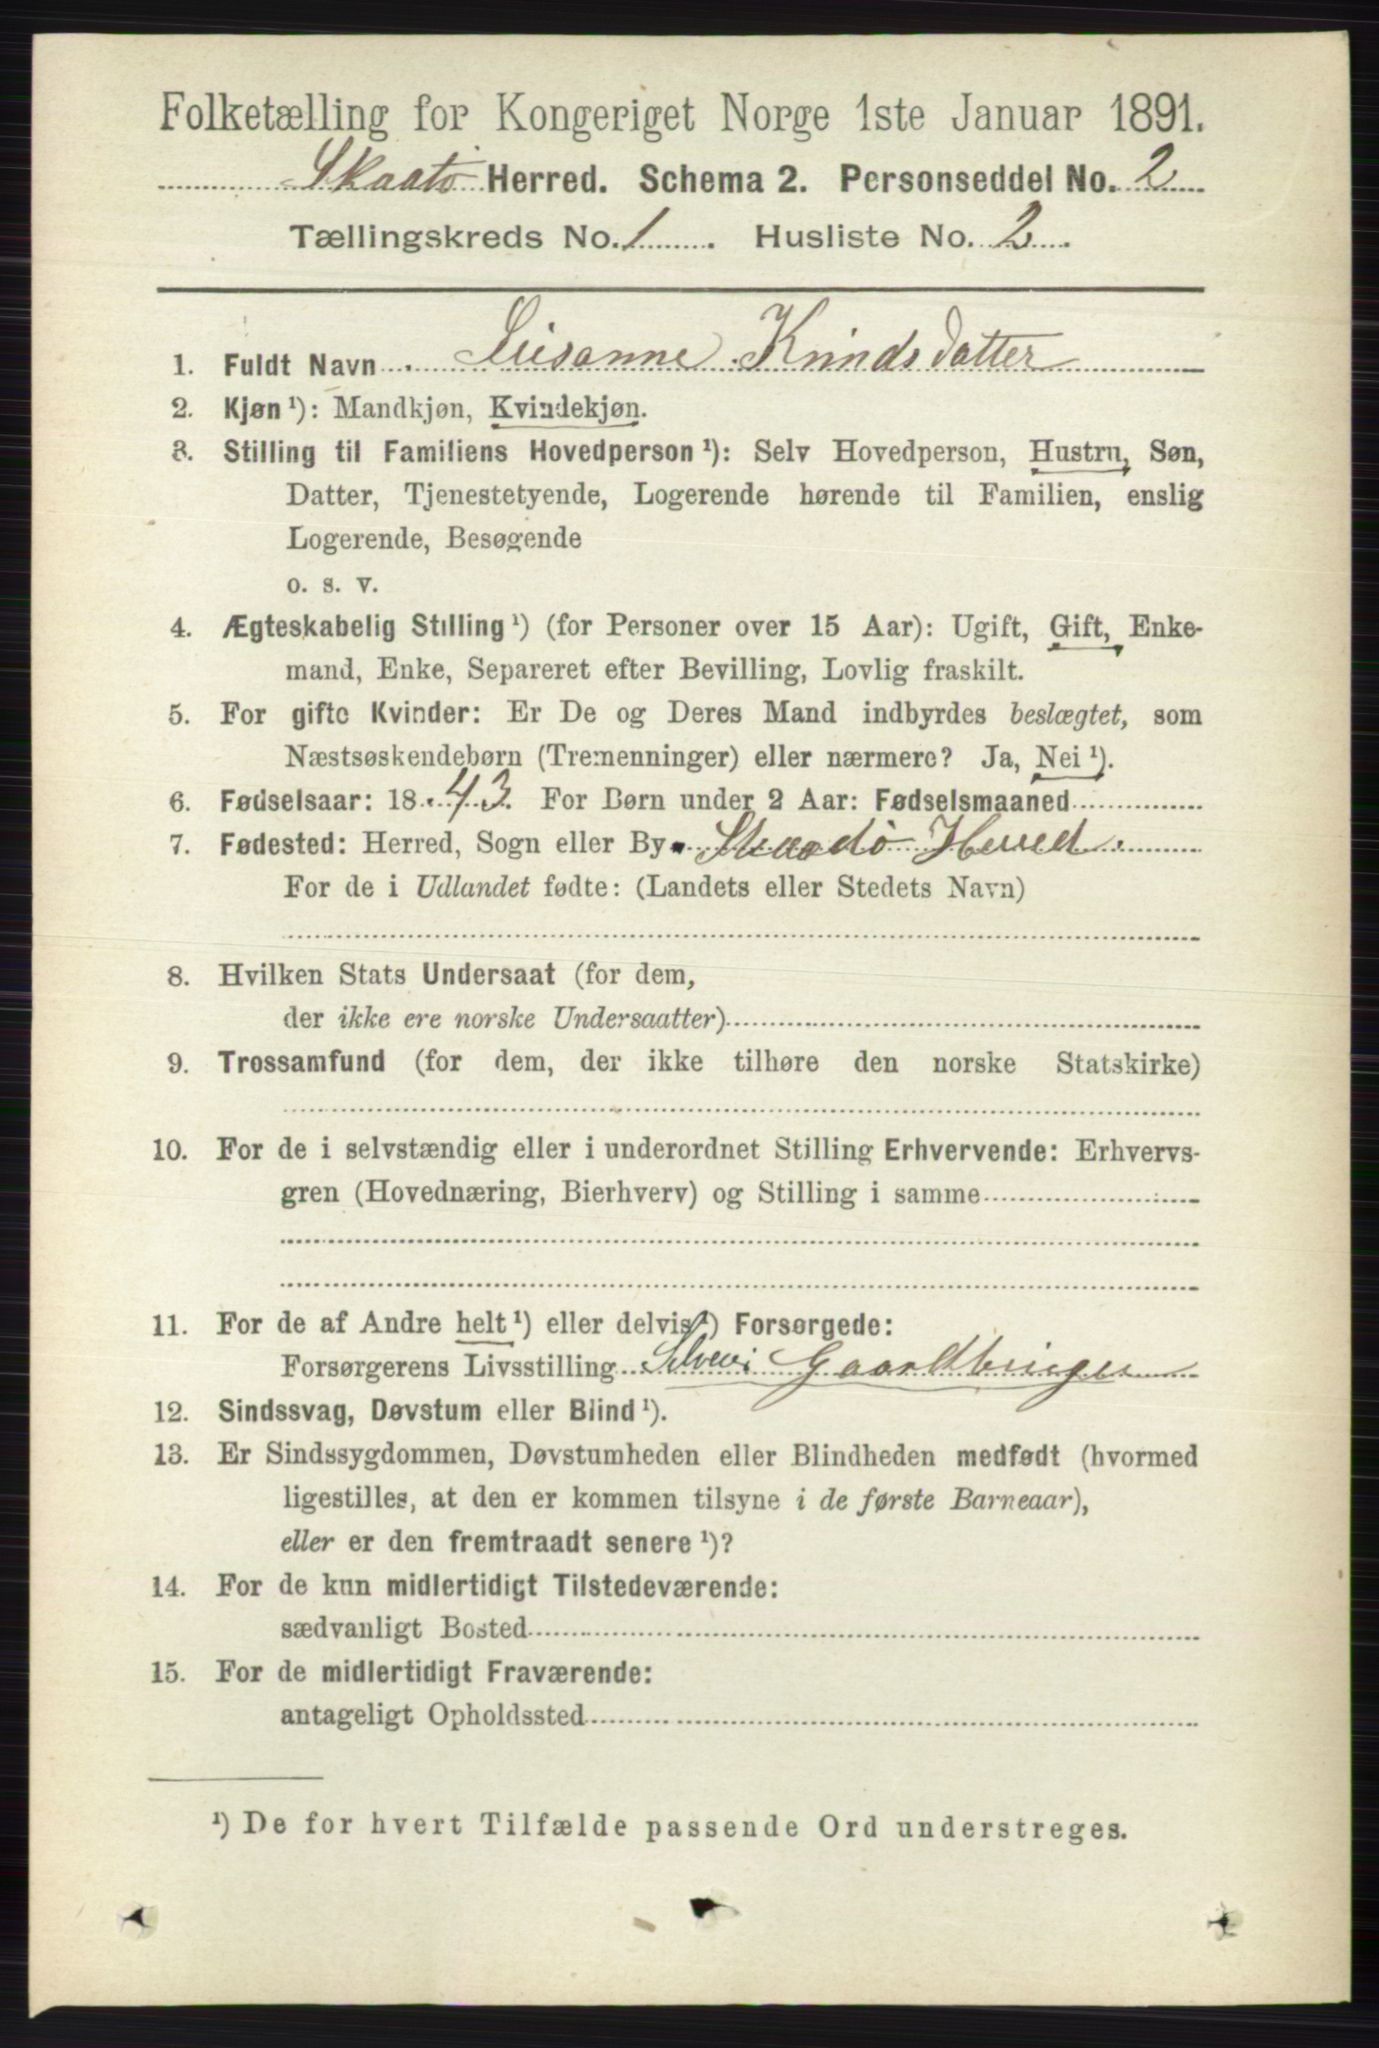 Folketælling for Kongeriget Norge 1ste Januar 1891.
Skaatø Herred. Schema 2. Personseddel No. 2
Tællingskreds No. 1. Husliste No. 2.
1. Fuldt Navn Susanne Knudsdatter
2. Kjøn ¹): Mandkjøn, Kvindekjøn.
3. Stilling til Familiens Hovedperson ¹): Selv Hovedperson, Hustru, Søn,
Datter, Tjenestetyende, Logerende hørende til Familien, enslig
Logerende, Besøgende
o. s. v.
4. Ægteskabelig Stilling ¹) (for Personer over 15 Aar): Ugift, Gift, Enke-
mand, Enke, Separeret efter Bevilling, Lovlig fraskilt.
5. For gifte Kvinder: Er De og Deres Mand indbyrdes beslægtet, som
Næstsøskendebørn (Tremenninger) eller nærmere? Ja, Nei ¹).
6. Fødselsaar: 1843. For Børn under 2 Aar: Fødselsmaaned
7. Fødested: Herred, Sogn eller By Skaadø Herred.
For de i Udlandet fødte: (Landets eller Stedets Navn)
8. Hvilken Stats Undersaat (for dem,
der ikke ere norske Undersaatter)
9. Trossamfund (for dem, der ikke tilhøre den norske Statskirke)
10. For de i selvstændig eller i underordnet Stilling Erhvervende: Erhvervs-
gren (Hovednæring, Bierhverv) og Stilling i samme
11. For de af Andre helt ¹) eller delvis ¹) Forsørgede:
Forsørgerens Livsstilling Selveier Gaardbruger
12. Sindssvag, Døvstum eller Blind ¹).
13. Er Sindssygdommen, Døvstumheden eller Blindheden medfødt (hvormed
ligestilles, at den er kommen tilsyne i de første Barneaar),
eller er den fremtraadt senere ¹)?
14. For de kun midlertidigt Tilstedeværende:
sædvanligt Bosted
15. For de midlertidigt Fraværende:
antageligt Opholdssted
¹) De for hvert Tilfælde passende Ord understreges.